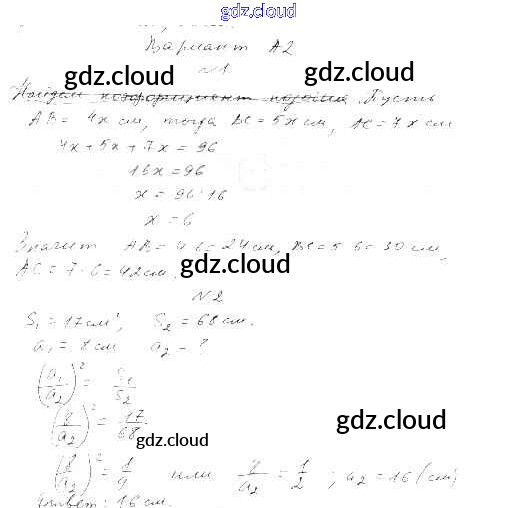 gdz.cloud
Вариант А2
gdz.cloud gdz.cloud
№1
Найдем коэффициент Пусть
AB = 4x см, тогда BC = 5x см, AC = 7x см
4x + 5x + 7x = 96
16x = 96
x = 96:16
x = 6
Значит AB = 4·6 = 24 см, BC = 5·6 = 30 см,
AC = 7·6 = 42 см.
gdz.cloud
№2
S₁ = 17 см², S₂ = 68 см.
a₁ = 8 см a₂ - ?
(a₁/a₂)² = S₁/S₂
(8/a₂)² = 17/68.
gdz.cloud
gdz.cloud
(8/a₂)² = 1/4 или 8/a₂ = 1/2 ; a₂ = 16 (см)
Ответ: 16 см.